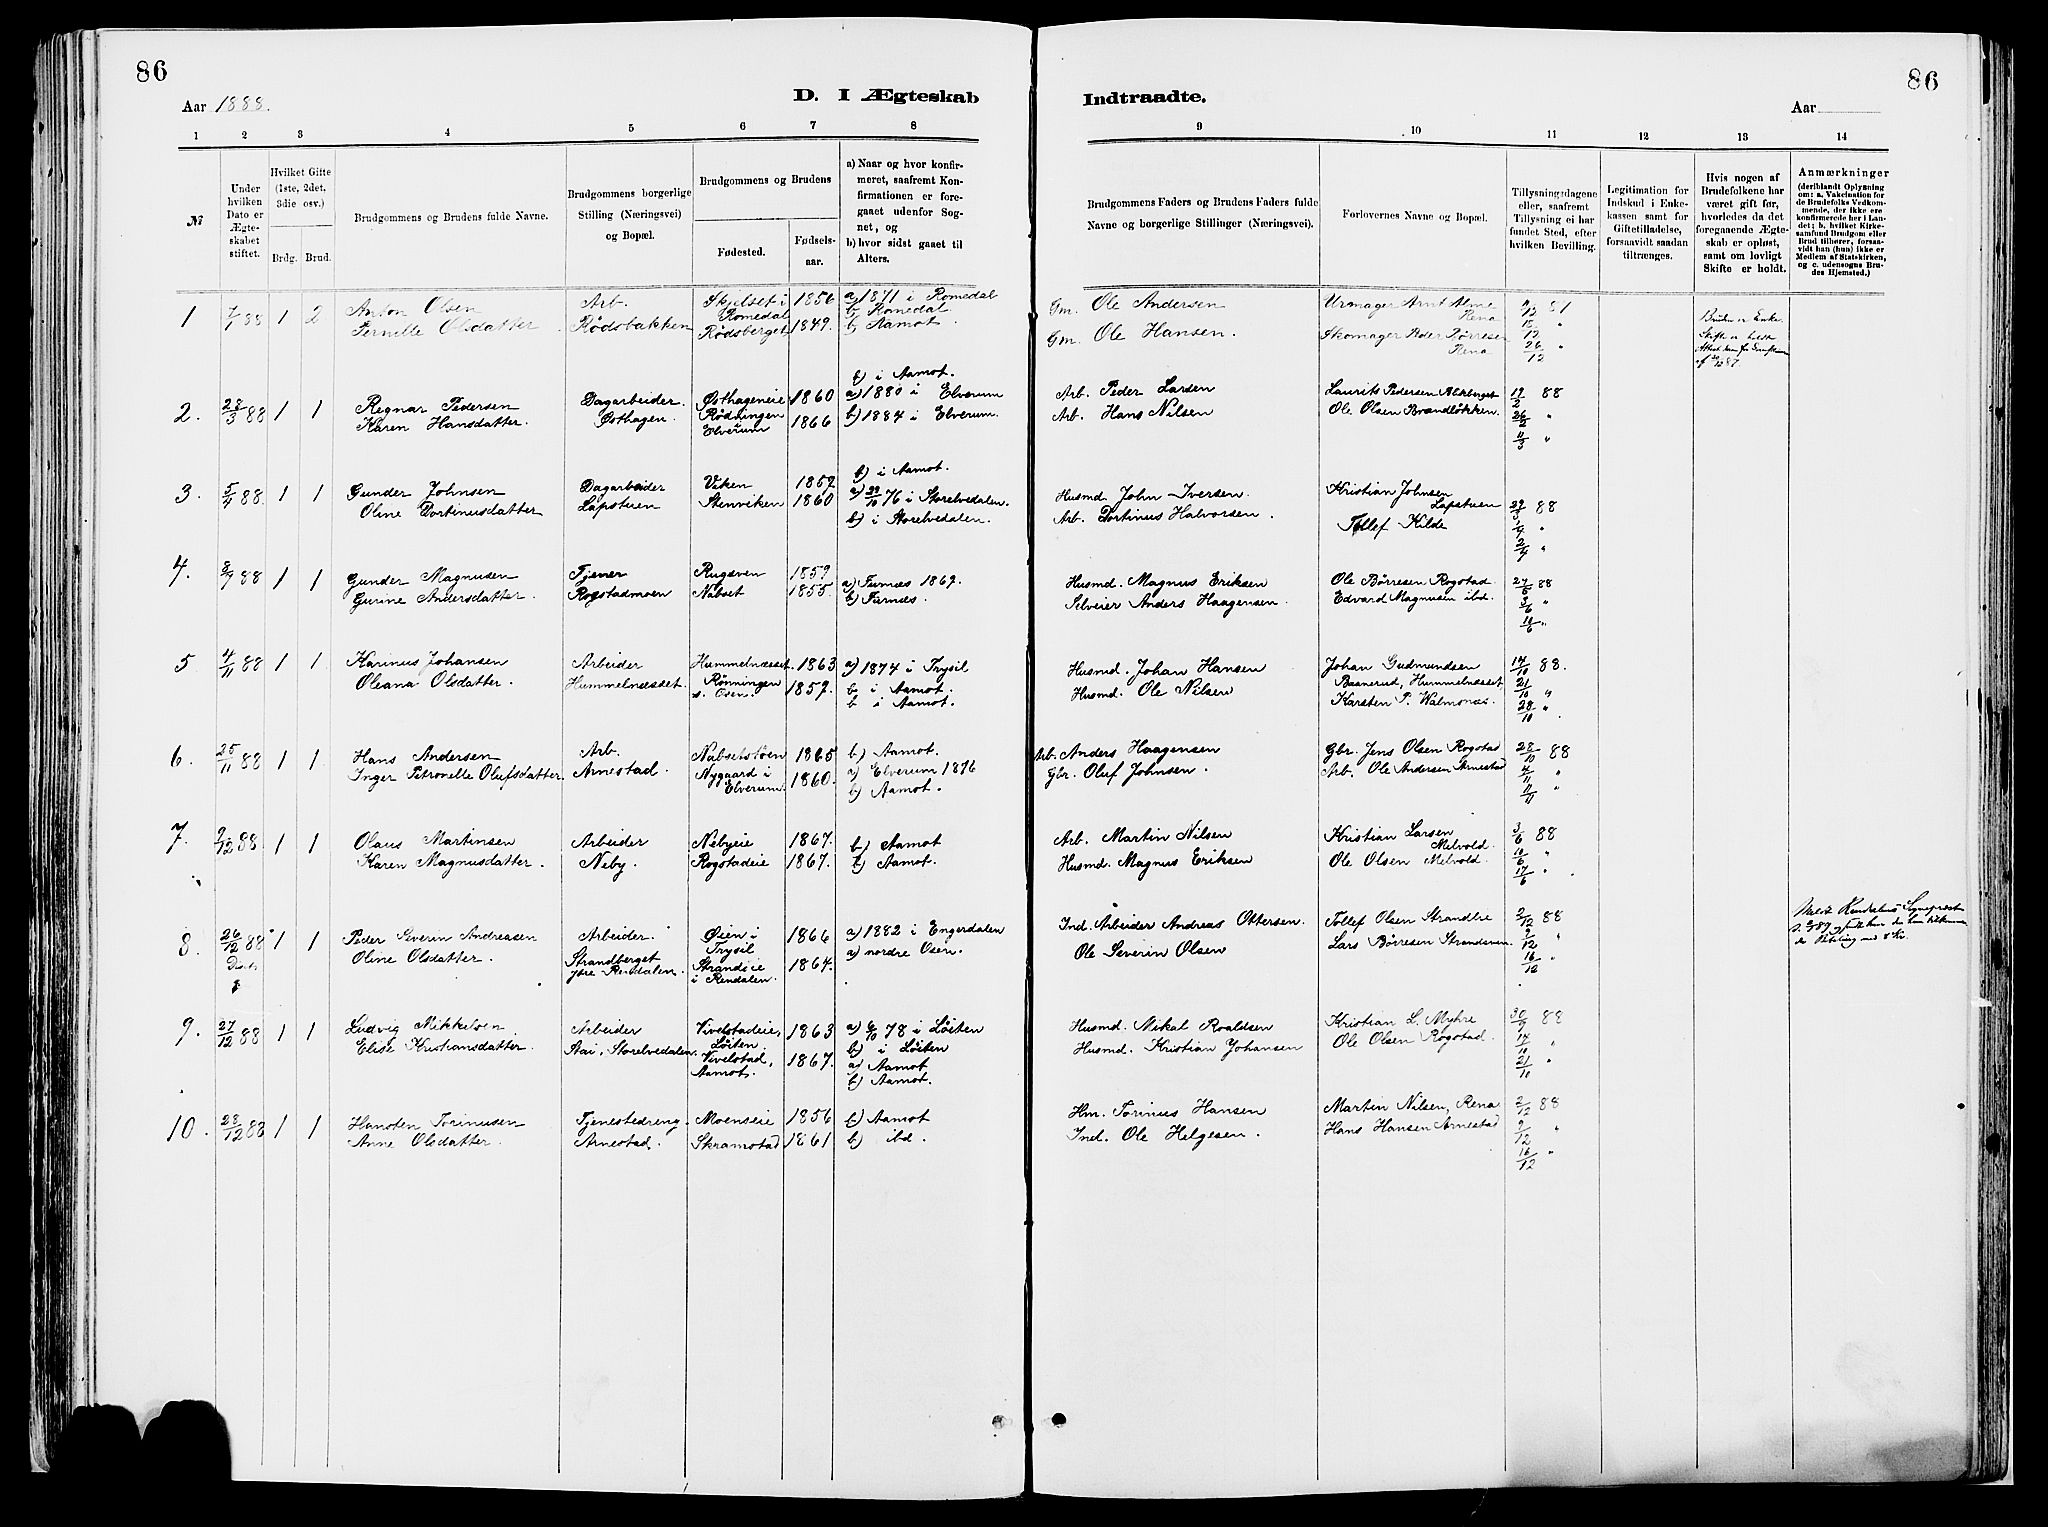 86
Aar 1888.
D. I Ægteskab
1 2 3 4 5 6 7 8
№
Under hvilken Dato er Ægteskabet stiftet.
Hvilket Gifte (1ste, 2det, 3die osv.)
Brdg. Brud.
Brudgommens og Brudens fulde Navne.
Brudgommens borgerlige Stilling (Næringsvei) og Bopæl.
Brudgommens og Brudens
Fødested.
Fødselsaar.
a) Naar og hvor konfirmeret, saafremt Konfirmationen er foregaaet udenfor Sognet, og
b) hvor sidst gaaet til Alters.
1 7/1 88 1 2 Anton Olsen Arb. Skjelset i Romedal 1856 a) 1871 i Romedal
b) Romedal
Pernille Olsdatter Rødsbakken Rødsberget 1849. b) Aamot.
b) i Aamot.
2. 28/3 88 1 1 Regnar Pedersen Dagarbeider. Østhageneie 1860 a) 1880 i Elverum
Karen Hansdatter. Østhagen. Rødningen i Elverum 1866 b) 1884 i Elverum.
b) i Aamot.
3. 5/4 88. 1 1 Gunder Johnsen Dagarbeider Viken 1857
Oline Tortinusdatter Lapstuen Stenviken 1860 76 i Storelvedalen.
b) i Storelvedalen.
4. 8/7 88 1 1 Gunder Magnusen Tjener Rugsven 1859
Gurine Andersdatter. Rogstadmoen Nabset 1855. a) Furnæs 1869.
b) Furnæs.
5 4/11 88 1 1 Karinus Johansen Arbeider Hummelnæsset. 1863 a) 1874 i Trysil
Oleana Olsdatter. Hummelnæsset. Rønningen s. Osen. 1857. b i Aamot.
b i Aamot.
6. 25/11 88 1 1 Hans Andersen Arb. Nabsetstøen 1865 b) Aamot.
Inger Petronelle Olufsdatter. Arnestad. Nygaard i Elverum 1860. a) Elverum 1876
b) Aamot.
7. 2/12 88. 1 1 Olaus Martinsen Arbeider Nebyeie 1867. b) Aamot
Karen Magnusdatter. Neby. Rogstadeie 1867. b) Aamot.
8. 26/12 88 1 1 Peder Severin Andreasen Arbeider. Øien i Trysil 1866 a) 1882 i Engerdalen
Oline Olsdatter. Strandberget ytre Rendalen. Strandeie i Rendalen. 1864. a) nordre Osen.
9. 27/12 88 1 1 Ludvig Mikkelsen Arbeider Vivelstadeie, Løiten. 1863 78 i Løiten
b) i Løiten
Elise Kristiansdatter. Stai, Storelvedalen. Vivelstad, Aamot. 1867. a) Aamot
b) Aamot.
10. 28/12 88 1 1 Hansten Torinusen Tjenestedreng Moenseie 1856 b) Aamot
Anne Olsdatter. Arnestad. Skramstad 1861 b) ibd.
86
Indtraadte.
Aar
9 10 11 12 13 14
Brudgommens Faders og Brudens Faders fulde Navne og borgerlige Stillinger (Næringsvei).
Forlovernes Navne og Bopæl.
Tillysningsdagene eller, saafremt Tillysning ei har fundet Sted, efter hvilken Bevilling.
Legitimation for Indskud i Enkekassen samt for Giftetilladelse, forsaavidt saadan tiltrænges.
Hvis nogen af Brudefolkene har været gift før, hvorledes da det foregaaende Ægteskab er opløst, samt om lovligt Skifte er holdt.
Anmærkninger
(deriblandt Oplysning om: a. Vakcination for de Brudefolks Vedkommende, der ikke ere konfirmerede her i Landet; b. hvilket Kirkesamfund Brudgom eller Brud tilhører, forsaavidt han (hun) ikke er Medlem af Statskirken, og c. udensogns Brudes Hjemsted.)
Gm. Ole Andersen Urmager Arnt Alme Rena
Gm. Ole Hansen. Skomager Peder Børresen Rena 26/12 "
Bruden er Enke.
Skifte er holdt
Arb. Peder Larsen Laurits Pedersen 19/2 88
Arb. Hans Nilsen Ole Olsen Brandløkken. 26/2 "
11/3 "
Husmd. John Iversen. Kristian Johnsen Lapstuen 88
Arb. Tortinus Halvorsen. Tollef Kilde "
2/4 "
Husmd. Magnus Eriksen Ole Børresen Rogstad 27/5 88
Selveier Anders Haagensen. Edvard Magnusen ibd. 3/6 "
10/6 "
Husmd. Johan Hansen Johan Gudmundsen Baanerud, Hummelnæsset 14/10 88.
21/10 "
Husmd. Ole Nilsen Karsten P. Walmonæs. 28/10 "
Arb. Anders Haagensen Gbr. Jens Olsen Rogstad 28/10 88
Gbr. Oluf Johnsen. Arb. Ole Andersen Arnestad 4/11 "
11/11 "
Arb. Martin Nilsen Kristian Larsen Melvold. 3/6 88
Husmd. Magnus Eriksen Ole Olsen Melvold. 10/6 "
17/6 "
Ind. Arbeider Andreas Ottersen. Tollef Olsen Strandlie 2/12 88
Ole Severin Olsen Lars Børresen 9/12 "
16/12 "
Husmd. Mikal Roaldsen Kristian L. Myhre 30/9 88
Husmd. Kristian Johansen Ole Olsen Rogstad. 14/10 "
21/10 "
Hm. Torinus Hansen Martin Nilsen, Rena 2/12 88
Ind. Ole Helgesen. Hans Hansen Arnestad 9/12 "
16/12 "